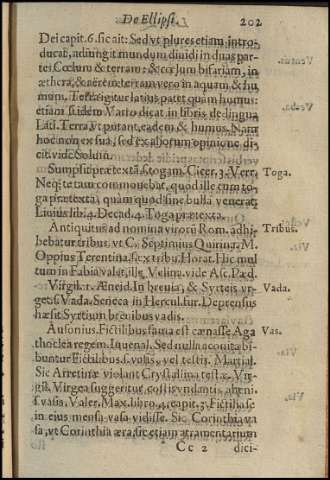 De Ellipsi. 202
Dei capit. 6. sic ait: Sed ut plures etiam intro-
ducat, adiungit mundum dividi in duas par-
tes, Cœlum & terram: & cœlum bifariam, in
æthera, & aërem: terram vero in aquam & hu
mum. Terra igitur latius patet quam humus:
etiam si idem Varro dicat in libris de lingua
Lati. Terra, ut putant, eadem & humus. Nam
hoc non ex sua, sed ex aliorum opinione di-
cit. vide Solum.
Sumpsit prætextā, s. togam. Cicer. 3. Verr. Toga.
Neq; te tam commovebat, quod ille cum to-
ga prætexta, quam quod sine bulla venerat.
Livius lib. 4. Decad. 4. Toga prætexta.
Antiquitus ad nomina virorū Rom. adhi- Tribus.
bebatur tribus. ut C. Septimius Quirina, M.
Oppius Terentina, s. ex tribu. Horat. Hic mul
tum in Fabia valet, ille Velina. vide Asc. Pæd.
Virgil. 1. Æneid. In brevia, & Syrteis ur- Vada.
get, s. Vada. Seneca in Hercul. fur. Deprensus
hæsit Syrtium brevibus vadis.
Ausonius. Fictilibus fama est cœnasse Aga Vas.
thoclea regem. Iuvenal. Sed nulla aconita bi-
buntur Fictilibus. s. vasis, vel testis. Martial.
Sic Arretinæ violant Crystallina testæ. Vir-
gil. Virgea suggeritur costis undantis aheni
s. vasis. Valer. Max. libro. 4. capit. 3. Fictilia se
in eius mensa vasa vidisse. Sic Corinthia va
sa, ut Corinthia æra, sic etiam atramentarium
Cc 2 dici-